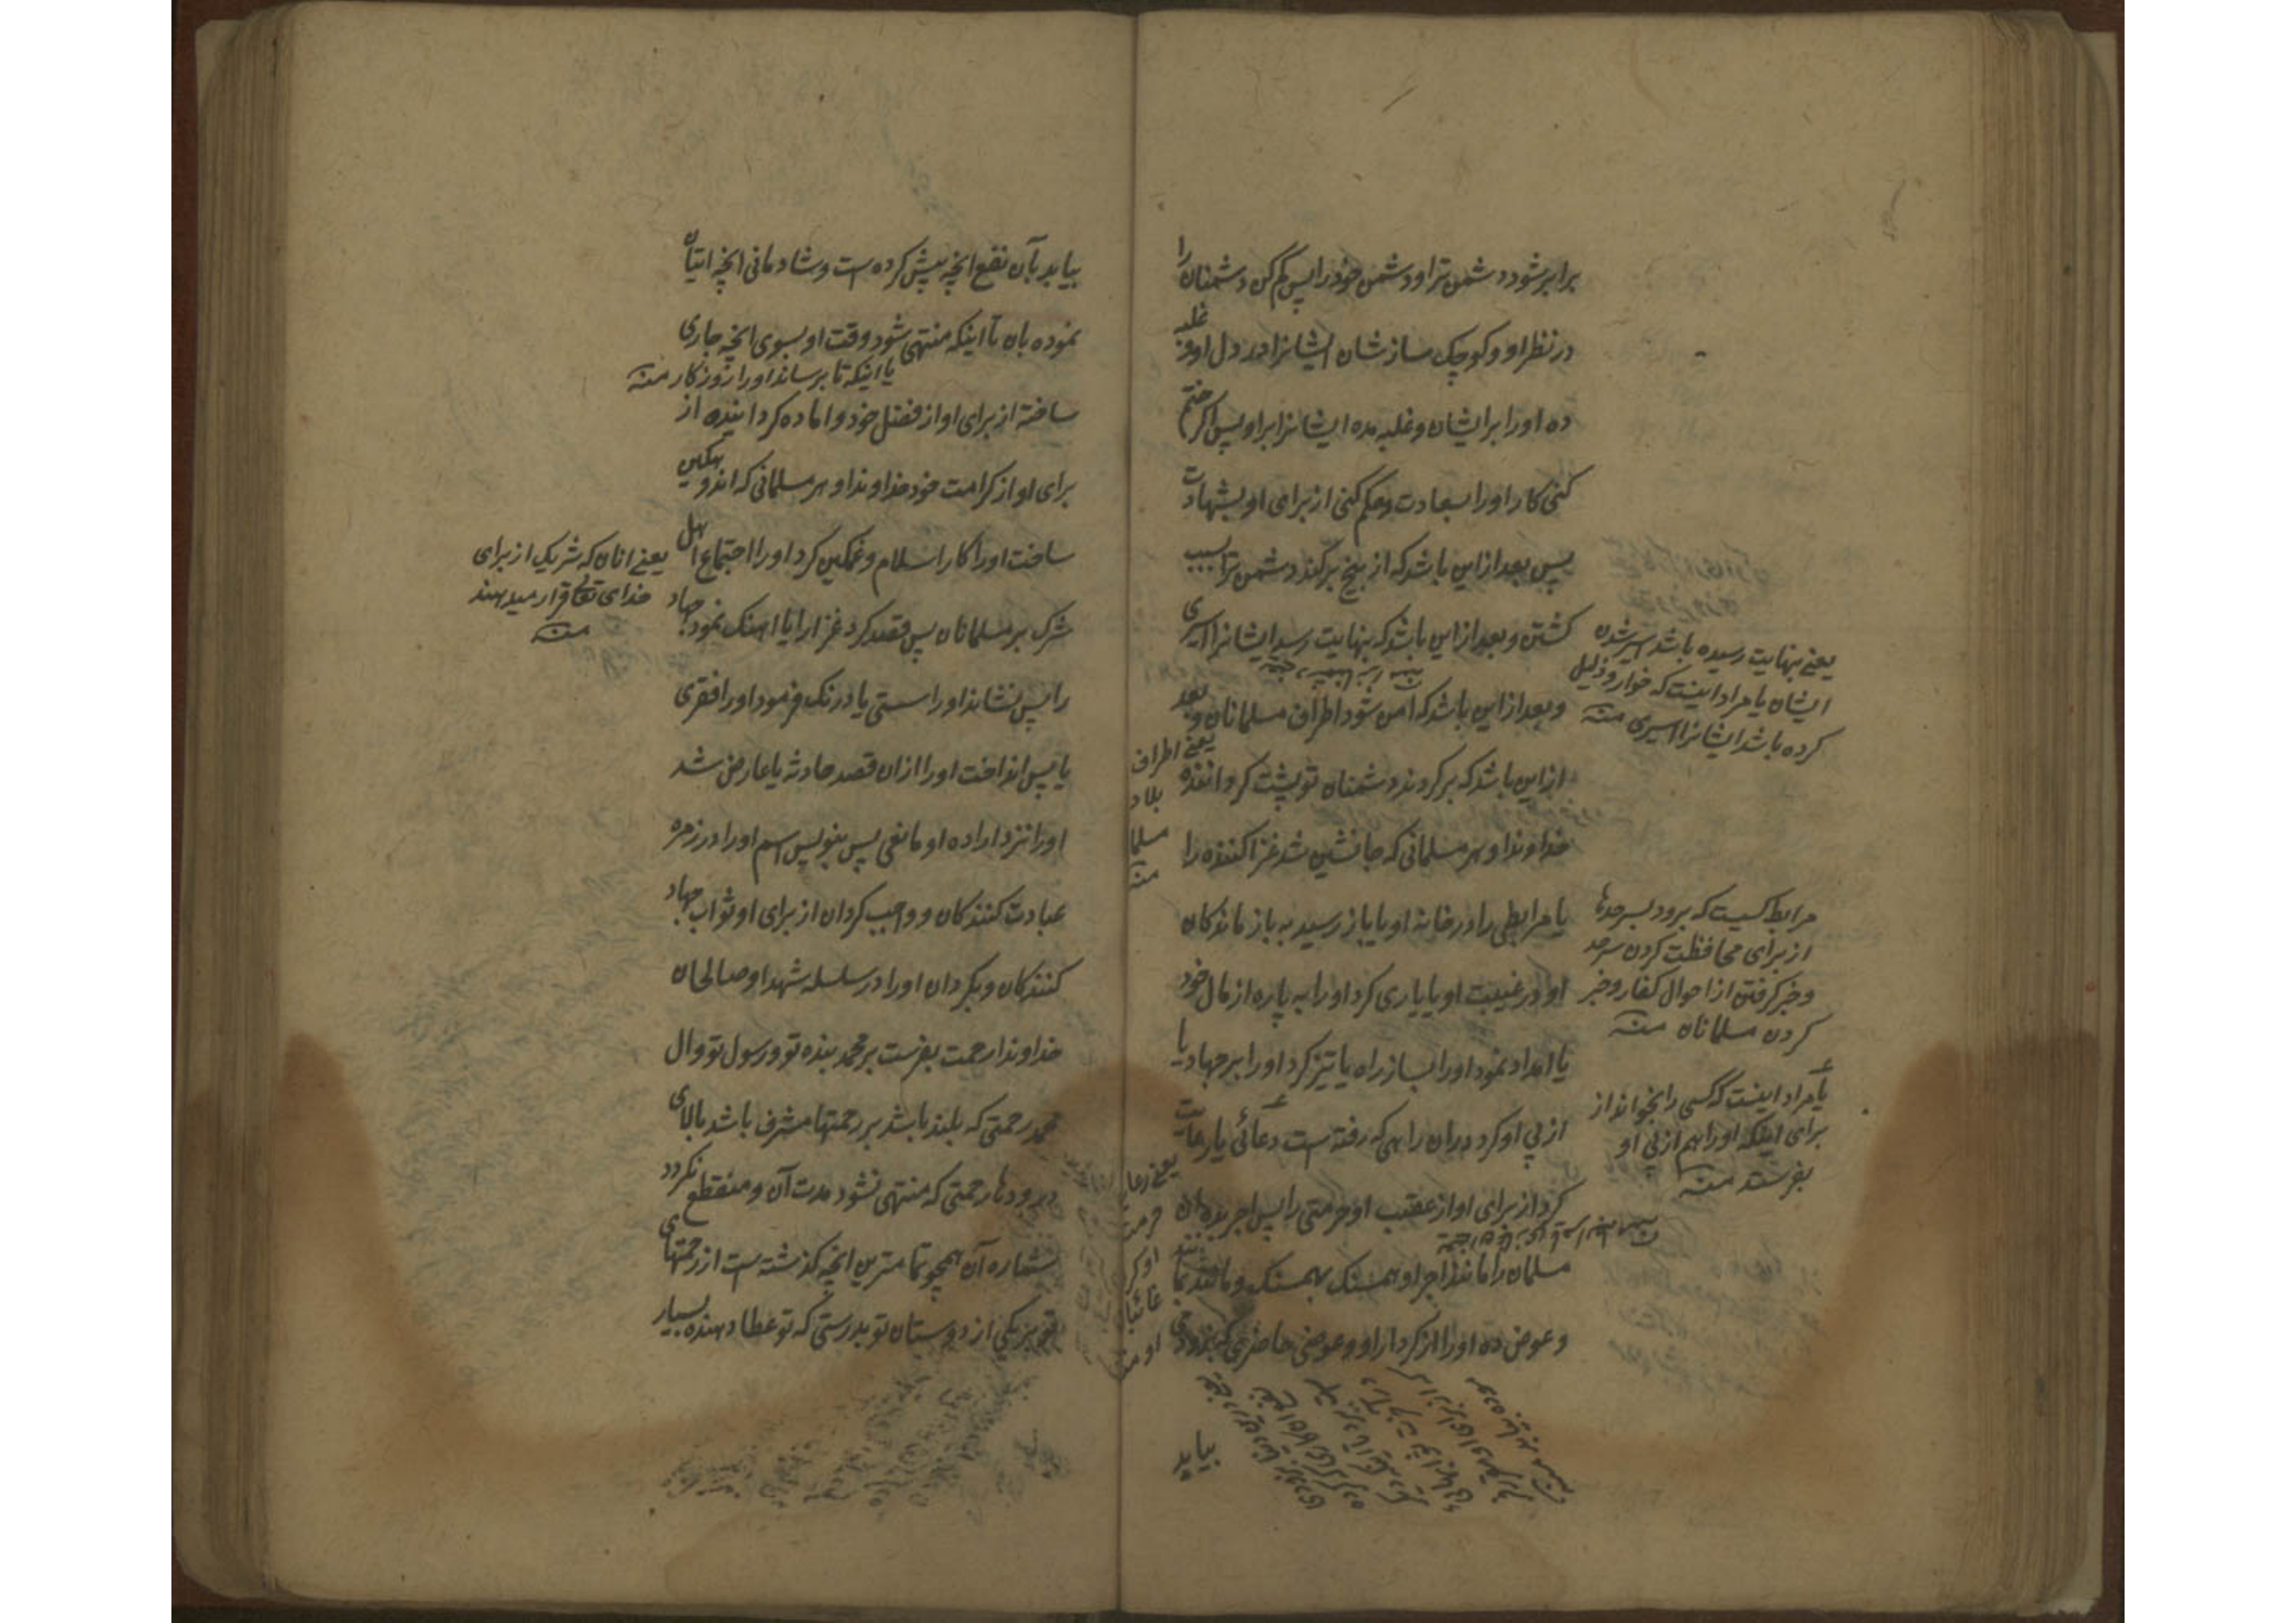 برابر شود دشمن ترا و دشمن خود را پس کم کن دشمنان را
در نظر او و کوچک ساز شان ایشانرا در دل او و غلبه
ده او را بر ایشان و غلبه مده ایشانرا بر او پس اگر ختم
کنی کار او را بسعادت و حکم کنی از برای او بشهادت
پس بعد از این باشد که از بیخ برکند دشمن ترا بسبب
کشتن و بعد از این باشد که بنهایت رسد ایشانرا اسیری
و بعد از این باشد که امن شود اطراف مسلمانان و بعد
از این باشد که برکردند دشمنان تو پشت کرداننده
خداوندا و هر مسلمانی که جانشین شد غزا کننده را
یا مرابطی را در خانه او یا باز رسید به باز ماندکان
او در غیبت او یا یاری کرد او را به پاره از مال خود
یا امداد نمود او را بساز راه یا تیز کرد او را بر جهاد یا
از پی او کرد در ان راهی که رفته است دعائی یا رعایت
کرد از برای او از عقب او حرمتی را پس اجر بده ان
مسلمان را مانند اجر او همسنک بهمسنک و مانند بمانند
و عوض ده او را از کردار او عوض حاضری که بزودی
یعنی بنهایت رسیده باشد اسیر شدن
ایشان یا مراد اینست که خوار و ذلیل
کرده باشد ایشانرا اسیری منه
یعنی اطراف
بلاد
مسلما
منه
مرابط کسیست که برود بسر حدها
از برای محافظت کردن سرحد
و خبر کرفتن از احوال کفار و خبر
کردن مسلمانان منه
یا مراد اینست که کسی را بخواند از
برای اینکه او را هم از پی او
بفرستد منه
یعنی رعایت
حرمت
او کرد
غائبا
او منه
بیابد
بیابد بآن نفع انچه پیش کرده است و شادمانی انچه اتیان
نموده بان تا اینکه منتهی شود وقت او بسوی انچه جاری
یا اینکه تا برساند او را روزکار منه
ساخته از برای او از فضل خود و اماده کردانیده از
برای او از کرامت خود خداوندا و هر مسلمانی که اندوهکین
ساخت او را کار اسلام و غمکین کرد او را اجتماع اهل
یعنی انان که شریک از برای
خدای تعالی قرار میدهند
منه
شرک بر مسلمانان پس قصد کرد غزا را یا اهنک نمود جهاد
را پس نشاند او را سستی یا درنک فرمود او را فقری
یا پس انداخت او را از ان قصد حادثه یا عارض شد
او را نزد اراده او مانعی پس بنویس اسم او را در زمره
عبادت کنندکان و واجب کردان از برای او ثواب جهاد
کنندکان و بکردان او را در سلسله شهدا و صالحان
خداوندا رحمت بفرست بر محمد بنده تو و رسول تو و ال
محمد رحمتی که بلند باشد بر رحمتها مشرف باشد بالای
درودها رحمتی که منتهی نشود مدت آن و منقطع نکردد
شماره آن همچو تمامترین انچه کذشته است از رحمتهای
تو بر یکی از دوستان تو بدرستی که تو عطا دهنده بسیار